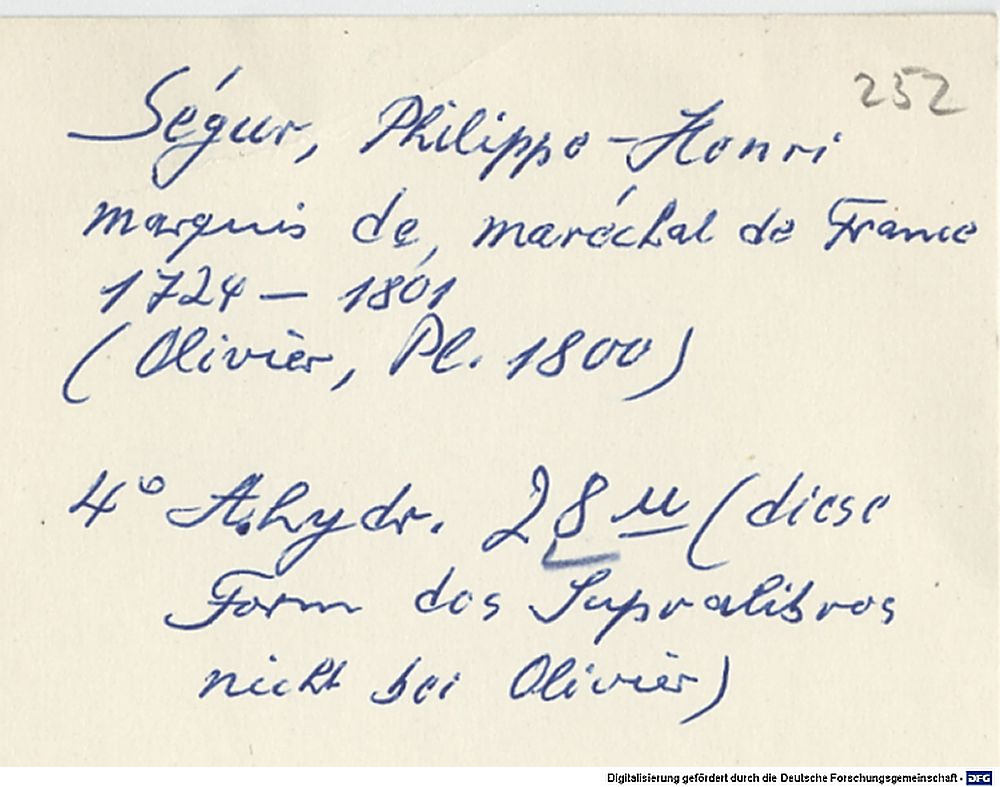 252
Ségur, Philippe-Henri
marquis de, maréchal de France
1724 – 1801
(Olivier, Pl. 1800)
4° A.hydr. 28 u (diese
Form des Supralibros
nicht bei Olivier)
Digitalisierung gefördert durch die Deutsche Forschungsgemeinschaft - DFG